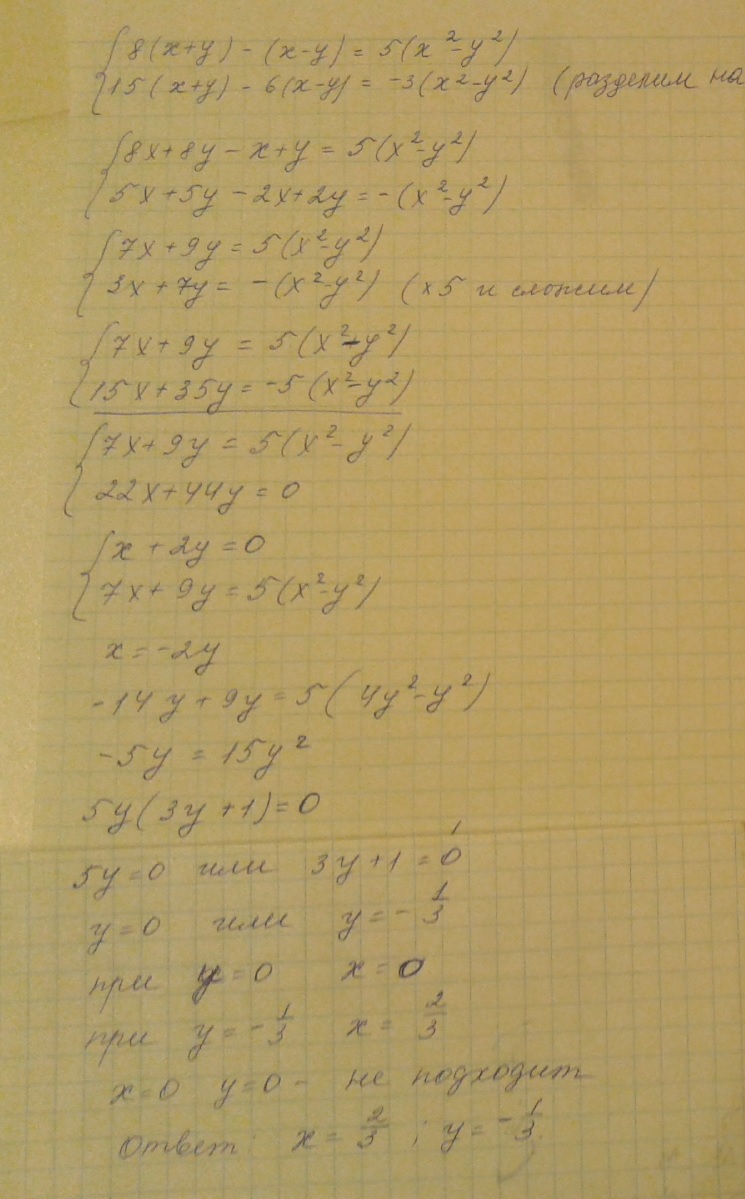 { 8(x+y) - (x-y) = 5(x²-y²)
{ 15(x+y) - 6(x-y) = -3(x²-y²) (разделим на
{ 8x+8y-x+y = 5(x²-y²)
{ 5x+5y-2x+2y = -(x²-y²)
{ 7x+9y = 5(x²-y²)
{ 3x+7y = -(x²-y²) (x5 и сложим)
{ 7x+9y = 5(x²-y²)
{ 15x+35y = -5(x²-y²)
{ 7x+9y = 5(x²-y²)
{ 22x+44y = 0
{ x+2y=0
{ 7x+9y = 5(x²-y²)
x=-2y
-14y+9y = 5(4y²-y²)
-5y = 15y²
5y(3y+1)=0
5y=0 или 3y+1=0
y=0 или y=-1/3
при y=0 x=0
при y=-1/3 x=2/3
x=0 y=0 - не подходит
Ответ: x=2/3; y=-1/3